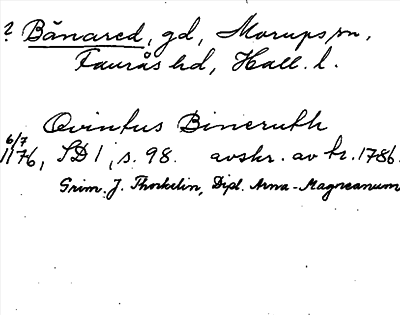 ? Bånared, gd, Morups sn,
Faurås hd, Hall. l.
Qvintus Bineruth
6/7
1176, SD 1, s. 98. avskr. av tr. 1786.
Grim. J. Thorkelin, Dipl. Arna-Magneanum